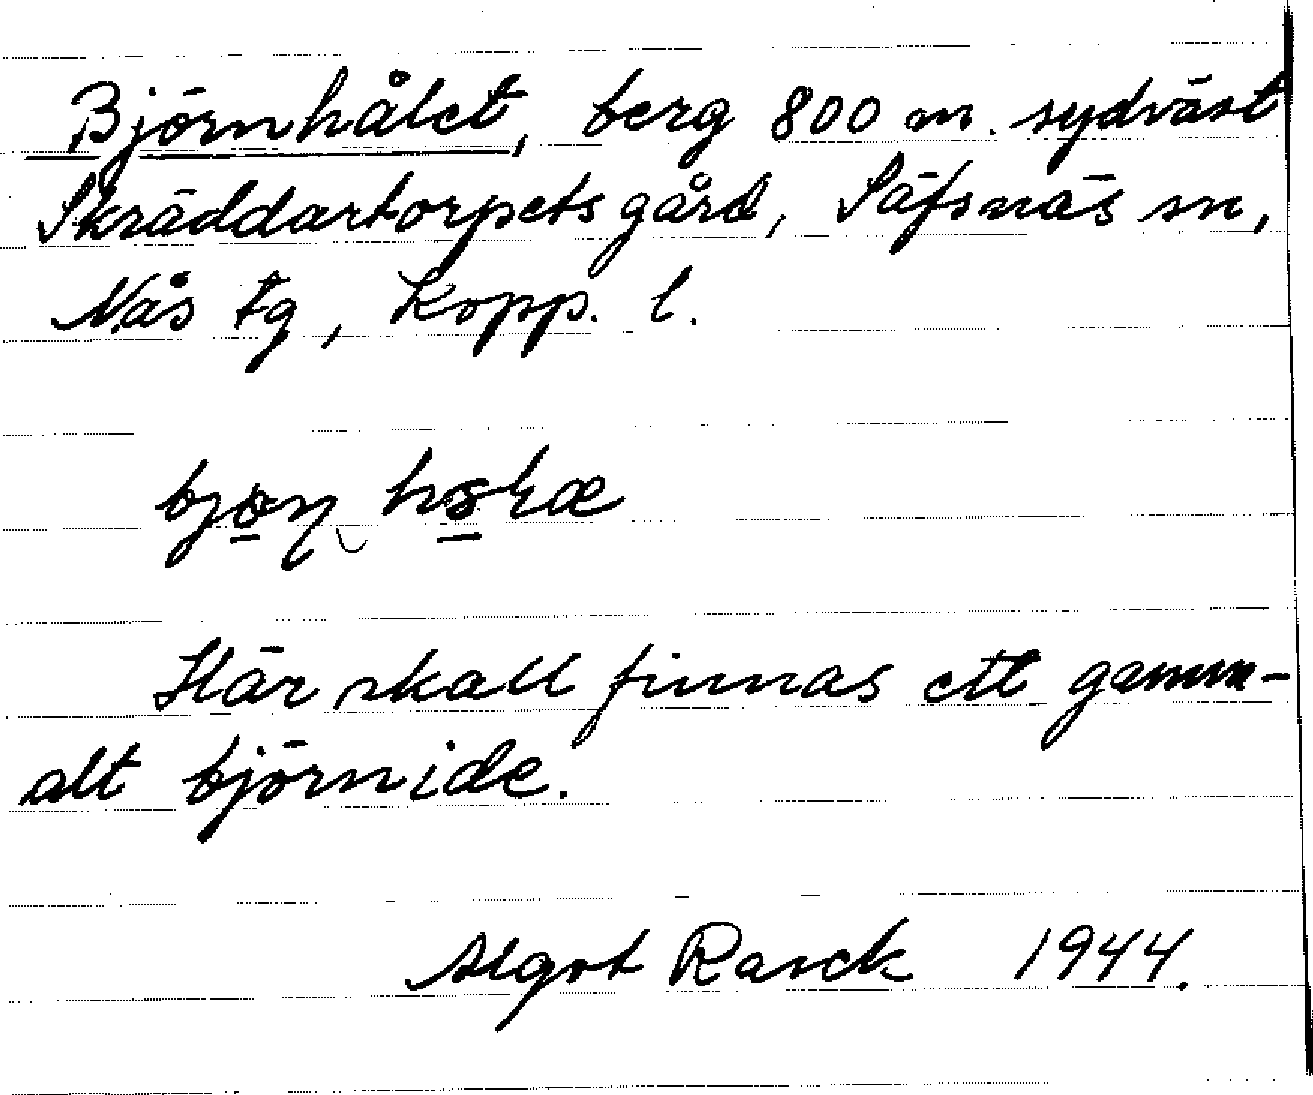 Björnhålet, berg 800 m. sydväst
Skräddartorpets gård, Säfsnäs sn,
Nås tg, Kopp. l.
Här skall finnas ett gamm-
alt björnide.
Algot Rasck 1944.